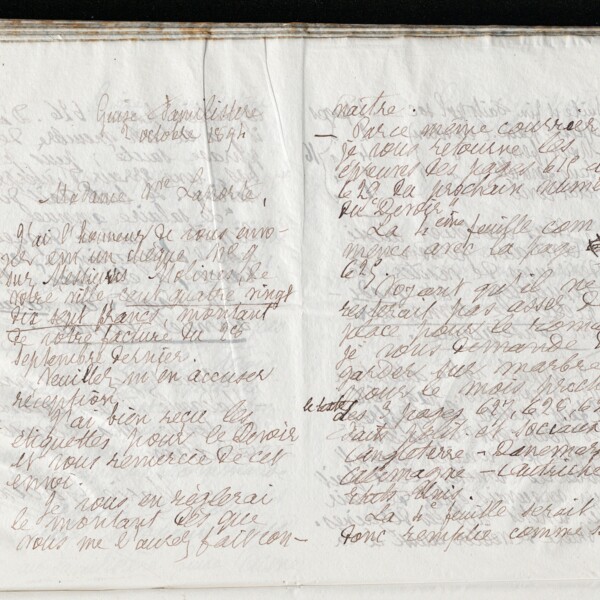 Guise Familistère
2 octobre 1894
Madame Vve Laporte,
J'ai l'honneur de vous envo-
yer ci un chèque N° 9
sur Messieurs Molines, de
votre ville cent quatre vingt
dix sept francs montant
de votre facture du
septembre dernier.
Veuillez m'en accuser
réception.
J'ai bien reçu les
étiquettes pour le Devoir
et vous remercie de cet
envoi.
Je vous en règlerai
le montant dès que
vous me l'aurez fait con-
naître.
— Par ce même courrier
je vous retourne les
épreuves des pages 615 à
629 du prochain numé
du "Devoir"
La 4ème feuille com
mence avec la page
625.
Voyant qu'il ne
resterait pas assez d
place pour le roma
je vous demande
garder sur marbre
pour le mois proch
le texte des pages 627, 628, 62
Faits polit. et sociaux
Angleterre - Danemar
Allemagne - Autriche
Etats Unis.
La 4e feuille serait
donc remplie comme s